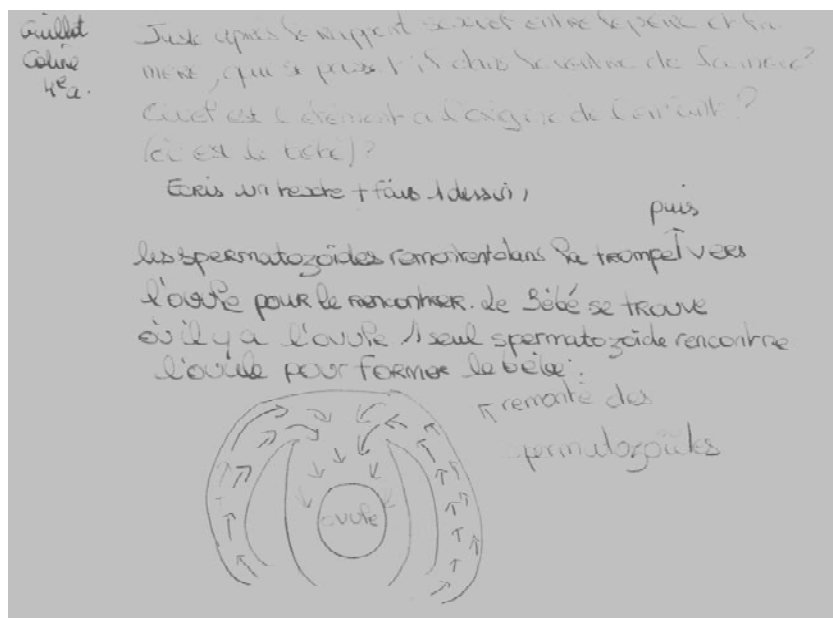 Guillot
Coline
4e a.
Juste après le rapport sexuel entre le père et la
mère, que se passe t'il dans le ventre de la mère?
Quel est l'élément a l'origine de l'enfant?
(ci est le bébé)?
Ecris un texte + fais 1 dessin,
puis
les spermatozoïdes remontent dans la trompe ↑ vers
l'ovule pour le rencontrer. Le Bébé se trouve
où il y a l'ovule 1 seul spermatozoïde rencontre
l'ovule pour former le bébé.
↑ remonté des
spermatozoïdes
ovule